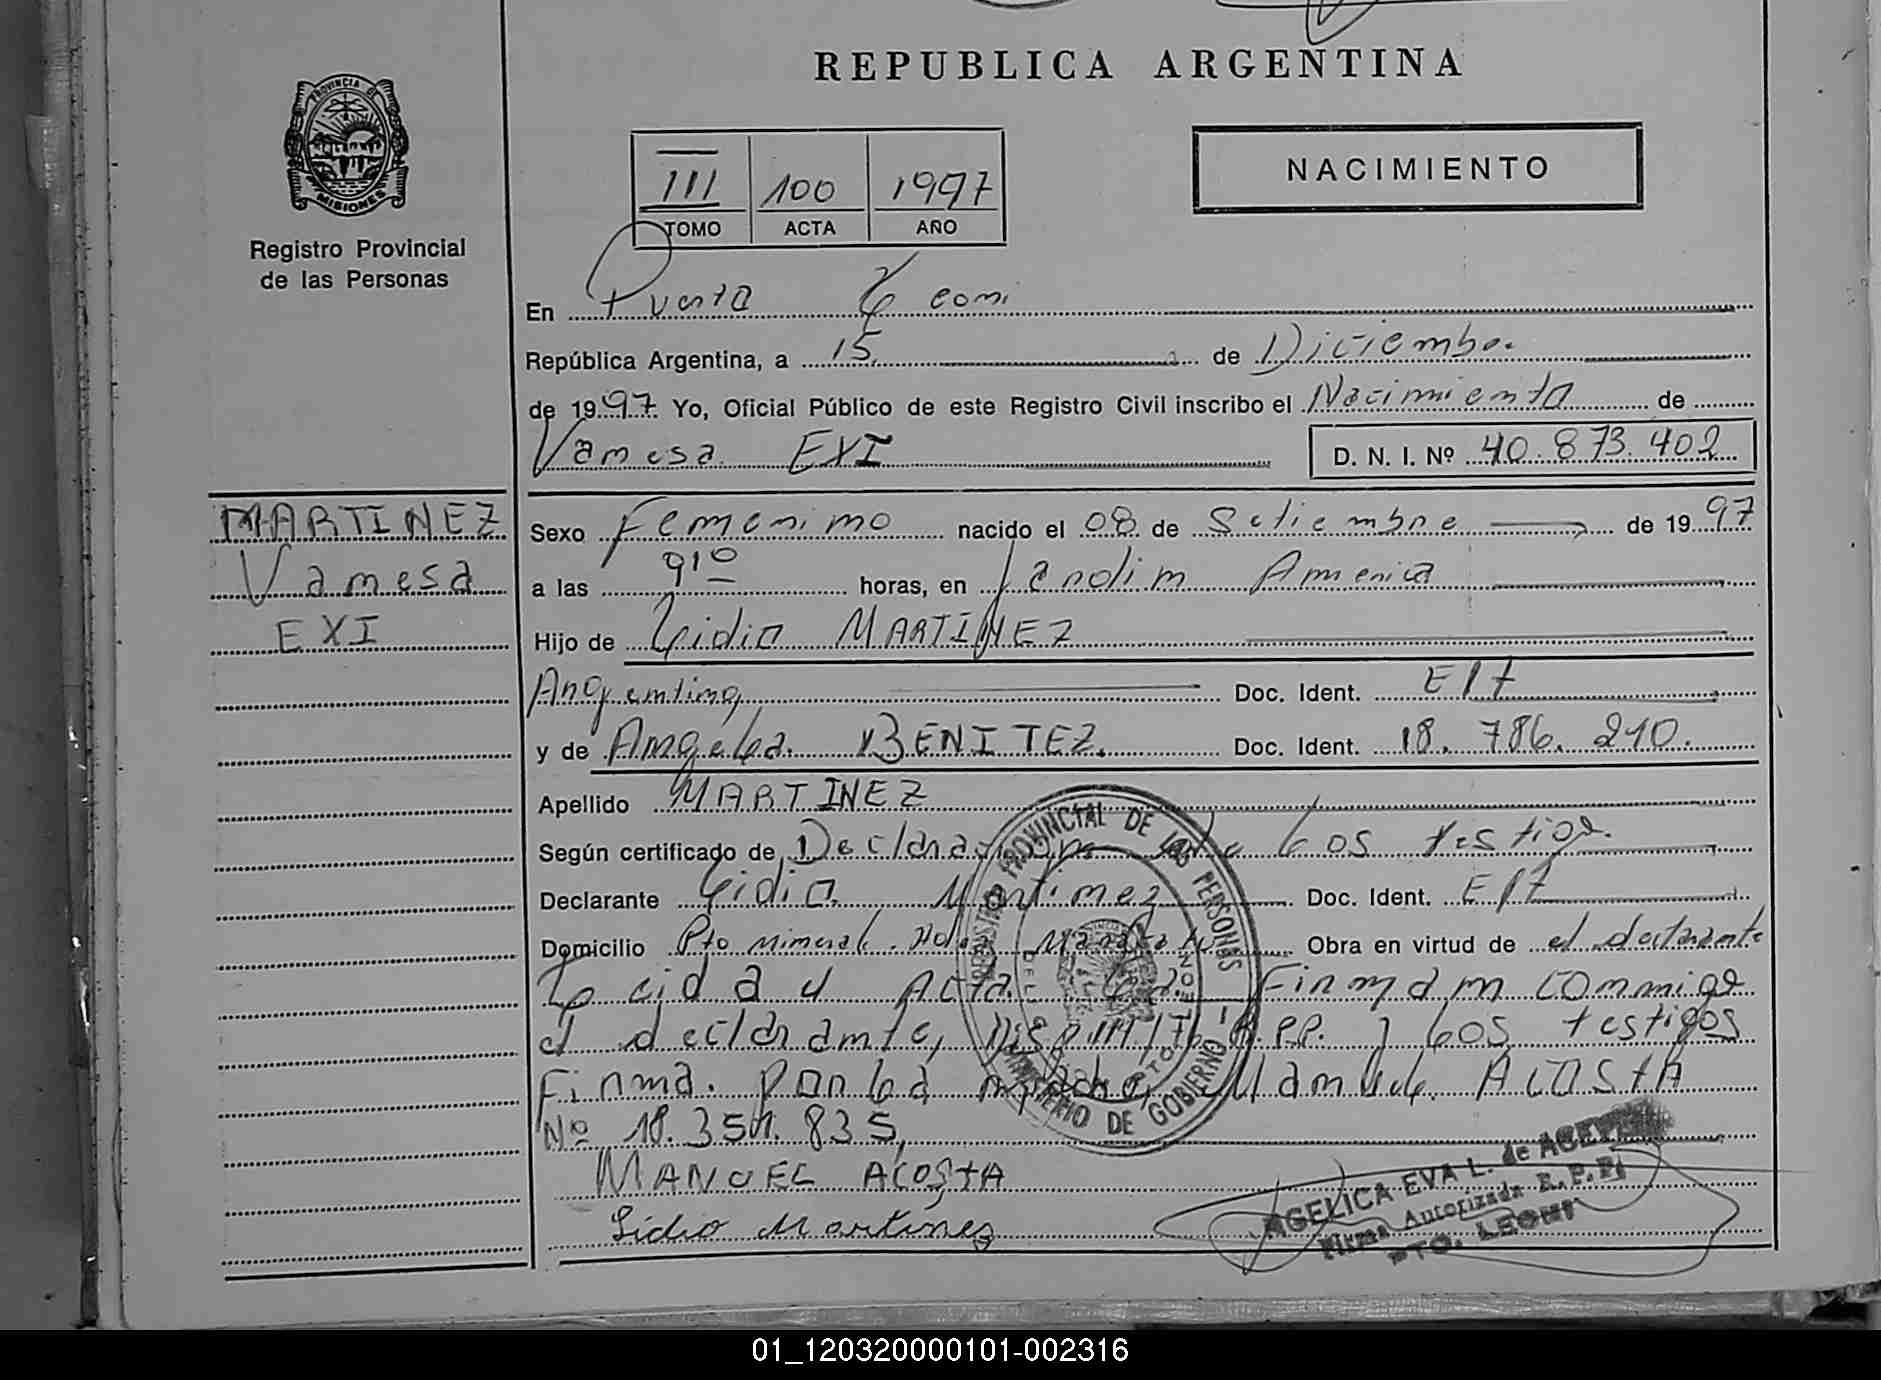 REPUBLICA ARGENTINA
PROVINCIA DE
MISIONES
Registro Provincial
de las Personas
III 100 1997
TOMO ACTA AÑO
NACIMIENTO
En Puerto Leoni
República Argentina, a 15 de Diciembre
de 1997 Yo, Oficial Público de este Registro Civil inscribo el Nacimiento de
Vanesa EXI D. N. I. Nº 40.873.402
MARTINEZ
Vanesa
EXI
Sexo Femenino nacido el 08 de Setiembre de 1997
a las 9¹⁰ horas, en Jardin America
Hijo de Lidio MARTINEZ
Argentino, Doc. Ident. E/T
y de Angela BENITEZ. Doc. Ident. 18. 786. 210.
Apellido MARTINEZ
Según certificado de Declaracion los testigo.
Declarante Lidio Martinez Doc. Ident. E/T
Domicilio Pto Mineral. Obra en virtud de el declarante
Leida el Acta Firman conmigo
el declarante, R.P.P. y los testigos
Firma. Por la madre, Manuel ACOSTA
Nº 18.351.835,
MANUEL ACOSTA
Lidio Martines
REGISTRO PROVINCIAL DE LAS PERSONAS
MINISTERIO DE GOBIERNO
AGELICA EVA L. de
Firma Autorizada R. P. P.
PTO. LEONI
01_120320000101-002316